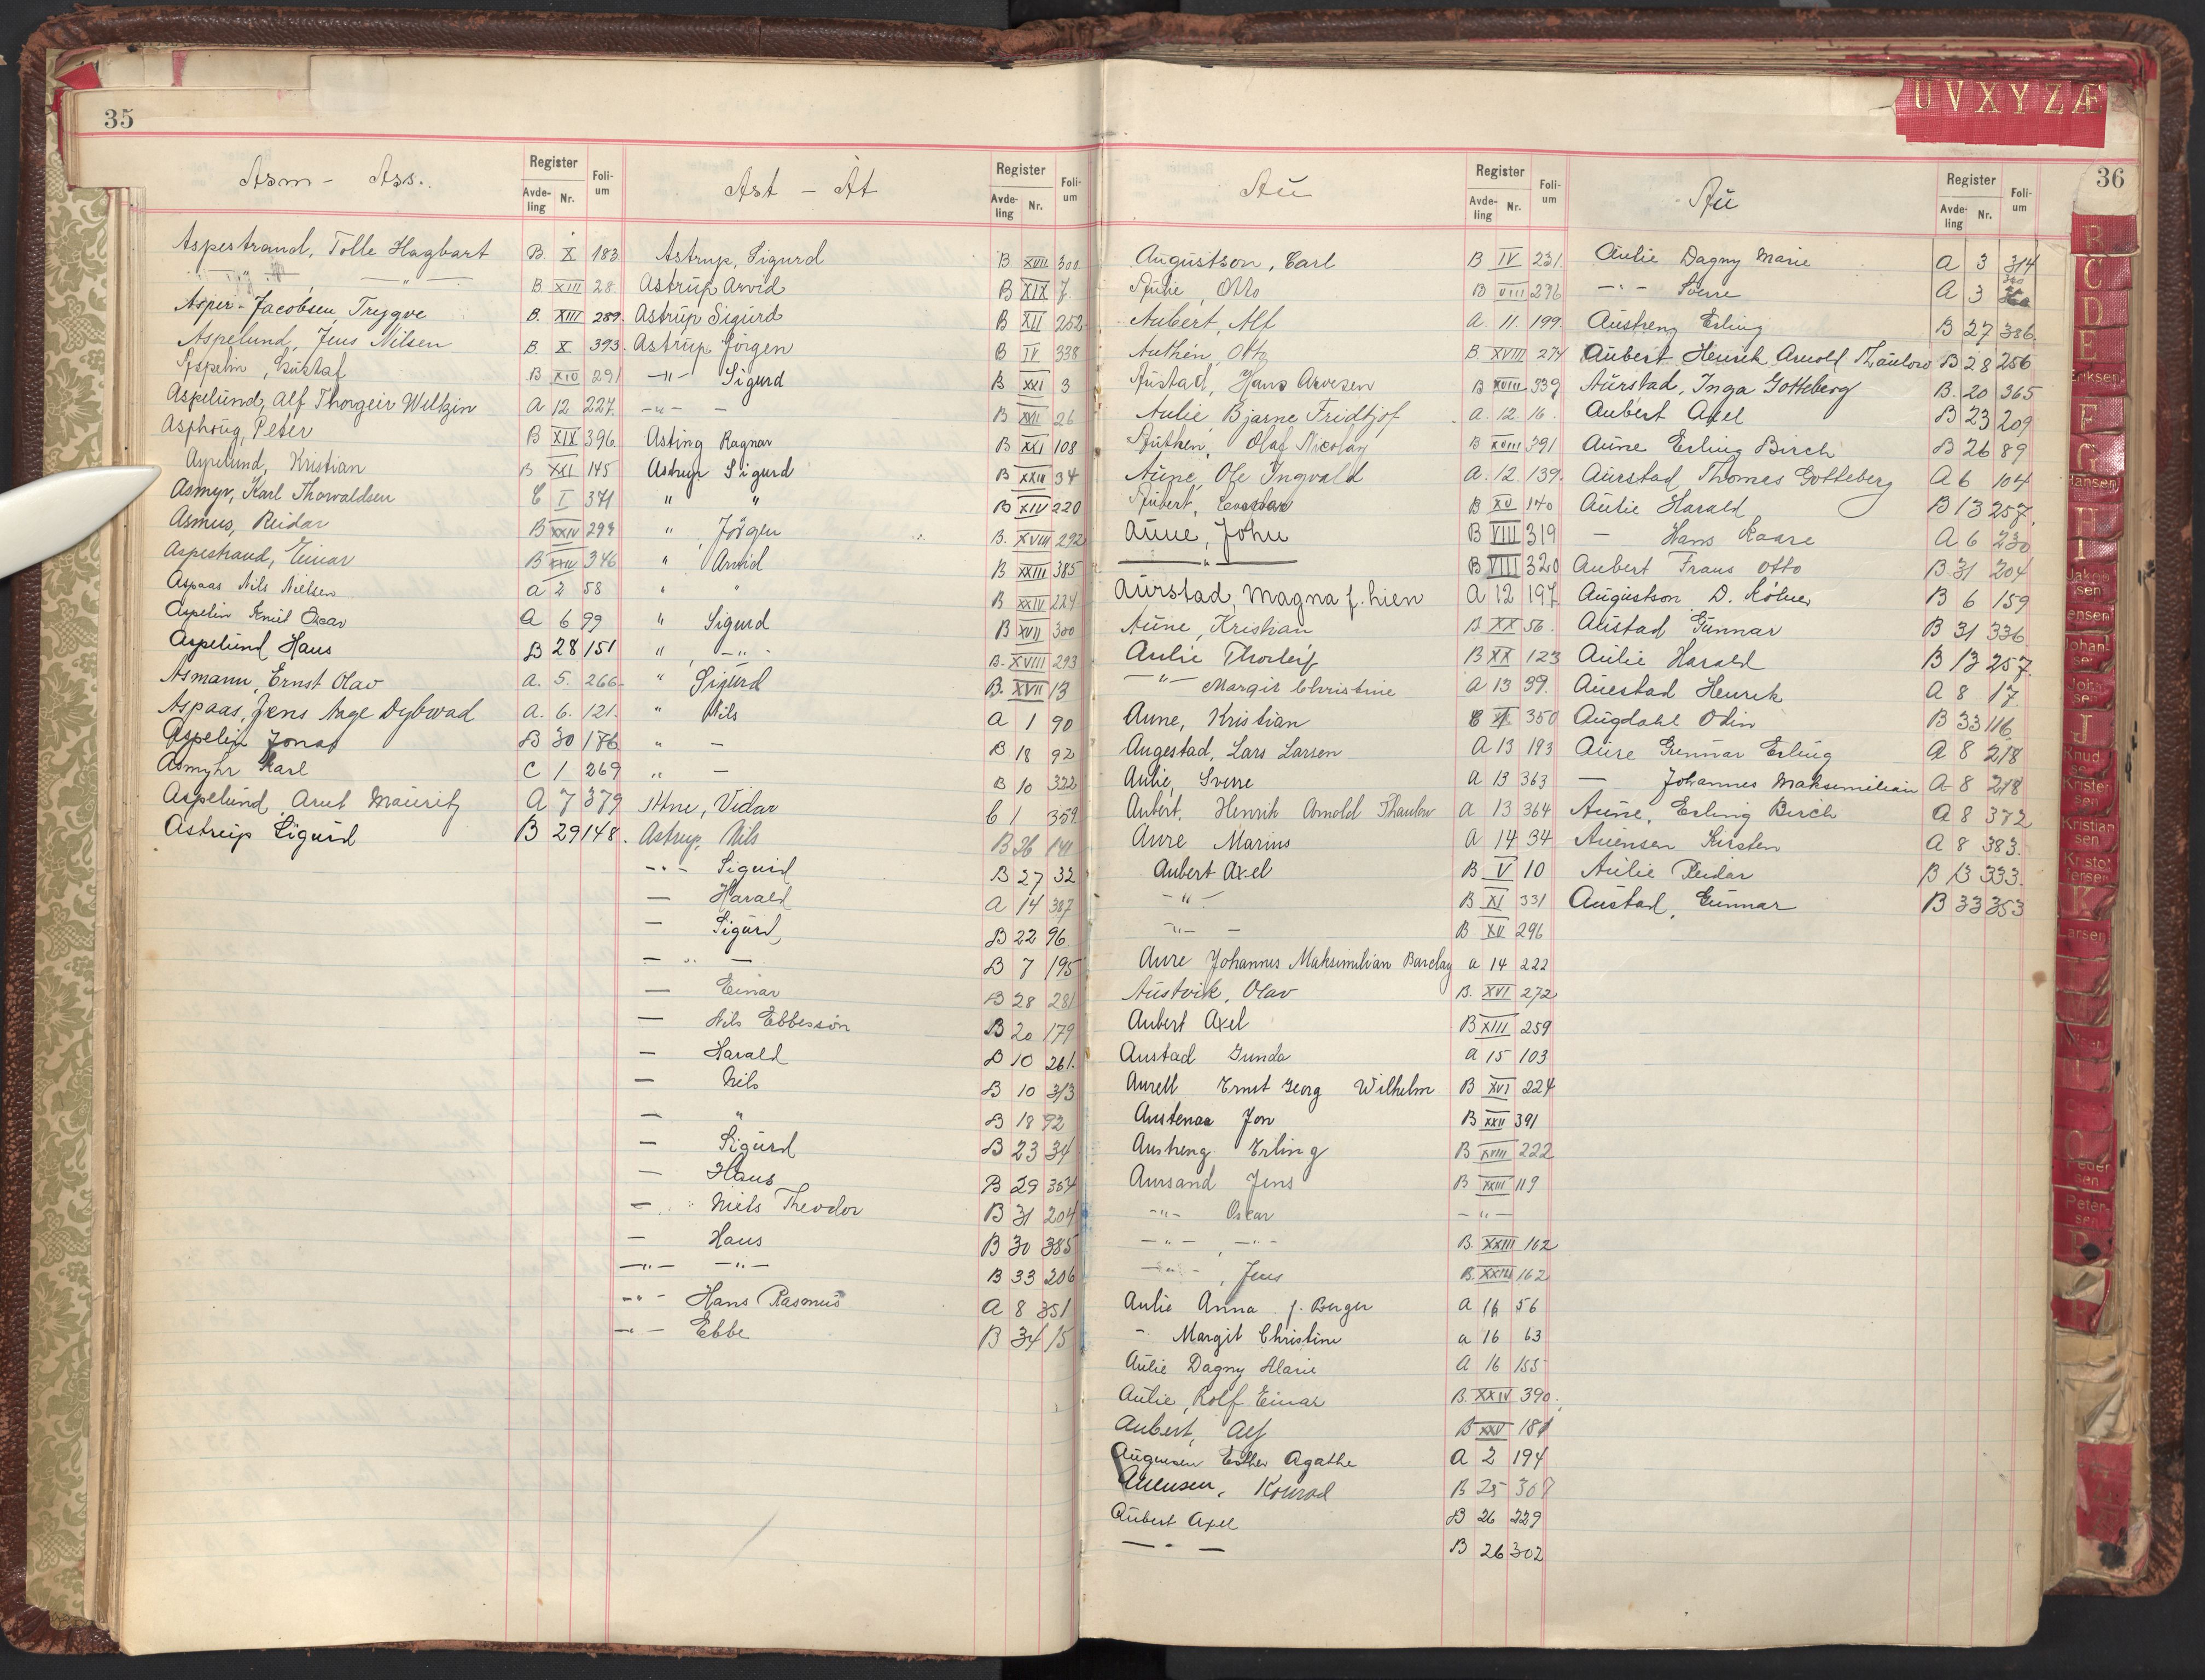 35
Asm - Ass.
Register
Avde-
ling
Nr.
Foli-
um
Aspestrand, Tolle Hagbart B. X 183
— " — B XIII 28
Asper-Jacobsen, Trygve B. XIII 289.
Aspelund, Jens Nilsen B. X 393.
Aspelin, Gustaf B XIV 291
Aspelund, Alf Thorgeir Weltzin A 12 227.
Asphoug, Peter B XIX 396
Aspelund, Kristian B XXI 145
Asmyr, Karl Thorvaldsen C I 371
Asmus, Reidar B XXIV 299
Aspestrand, Einar B XXII 346
Aspaas Nils Nielsen a 2 58
Aspelin Knut Oscar a 6 99
Aspelund Hans B 28 151
Asmann, Ernst Olav a. 5. 266.
Aspaas, Jens Aage Dybwad a. 6. 121.
Aspelin Jonas B 30 186
Asmyhr Karl C 1 269
Aspelund Arnt Mauritz A 7 379
Astrup Sigurd B 29 148.
Ast - At
Register
Avde-
ling
Nr.
Foli-
um
Astrup, Sigurd B XVII 300
Astrup Arvid B XIX 7
Astrup Sigurd B XII 252
Astrup Jörgen B IV 338
—"— Sigurd B XXI 3
—"— — B XVII 26
Asting Ragnar B XXI 108
Astrup Sigurd B XXII 34
" " B XIV 220
" , Jörgen B. XVIII 292
" Arvid B XXIII 385
" " B XXIV 224
" Sigurd B XVII 300
" , —"— B. XVIII 293
" Sigurd B. XVII 13
" Nils a 1 90
" — B 18 92
" — B 10 322
Atne, Vidar C 1 359.
Astrup, Nils B 26 141
—"— Sigurd B 27 32
— Harald a 14 387
— Sigurd B 22 96
— " — B 7 195
— Einar B 28 281
— Nils Ebbessön B 20 179
— Harald B 10 261.
— Nils B 10 313
— " B 18 92
— Sigurd B 23 34
— Hans B 29 354
— Niels Theodor B 31 204
— Hans B 30 385
—"— —"— B 33 206
—"— Hans Rasmus A 8 351
—"— Ebbe B 34 15
Au
Register
Avde-
ling
Nr.
Foli-
um
Augustson, Carl B IV 231.
Aulie, Otto B VIII 296
Aubert, Alf A. 11. 199.
Authén, Otto B. XVIII 274
Austad, Hans Arvesen B XVIII 339
Aulie, Bjarne Fridtjof a. 12. 16.
Authen, Olaf Nicolay B XVIII 391
Aune, Ole Ingvald a. 12. 139.
Aubert, B XV 140
Aune, John B VIII 319
— " — B VIII 320
Aurstad, Magna f. Lien A 12 197
Aune, Kristian B XX 56.
Aulie Thorleif B XX 123
—"— Margit Christine A 13 39.
Aune, Kristian 350
Augestad, Lars Larsen A 13 193
Aulie, Sverre a 13 363
Aubert, Henrik Arnold Thaulow a 13 364
Aure Marius a 14 34
Aubert Axel B V 10
—"— B XI 331
—"— — B XV 296
Aure Johannes Maksimilian Barclay a 14 222
Austvik, Olav B. XVI 272
Aubert Axel B XIII 259
Austad Gunda a 15 103
Aurell Ernst Georg Wilhelm B XVI 224
Austenaa Jon B XXII 391
Austreng Erling B XVIII 222
Aursand Jens B XXIII 119
—"— Oscar —"—
—"— , —"— B. XXIII 162
—"— , Jens B. XXIII 162
Aulie Anna f. Berger a 16 56
— Margit Christine a 16 63
Aulie Dagny Marie A 16 155
Aulie, Rolf Einar B. XXIV 390.
Aubert, Alf B XXV 181
Augensen Esther Agathe A 2 194
Auensen, Konrad B 25 307
Aubert Axel B 26 229
— " — B 26 302
Au
Register
Avde-
ling
Nr.
Foli-
um
36
Aulie Dagny Marie A 3 314
—"— Sverre A 3
Austreng Erling B 27 386.
Aubert Henrik Arnold Thaulow B 28 256
Aurstad, Inga Gotteberg B. 20 365
Aubert Axel B 23 209
Aune Erling Birch B 26 89
Aurstad Thomas Gotteberg A 6 104
Aulie Harald B 13 257.
— Hans Kaare A 6 230
Aubert Frans Otto B 31 204
Augustson D. Kölner B 6 159
Austad Gunnar B 31 336
Aulie Harald B 13 257.
Auestad Henrik A 8 17.
Augdahl Odin B 33 116
Aure Gunnar Erling A 8 218
— Johannes Maksimilian A 8 218
Aune, Erling Birch A 8 372
Auensen Kirsten A 8 383.
Aulie Reidar B 13 333.
Austad, Gunnar B 33 353
U V X Y Z Æ
B
C
D
E
Eriksen
F
G
Hansen
H
I
Jakob
sen
Jensen
Johan-
sen
Joh
sen
J
Knud
se
Kristen
sen
Kristian
sen
Kristof
fersen
K
Larsen
Peder
sen
Peter-
sen